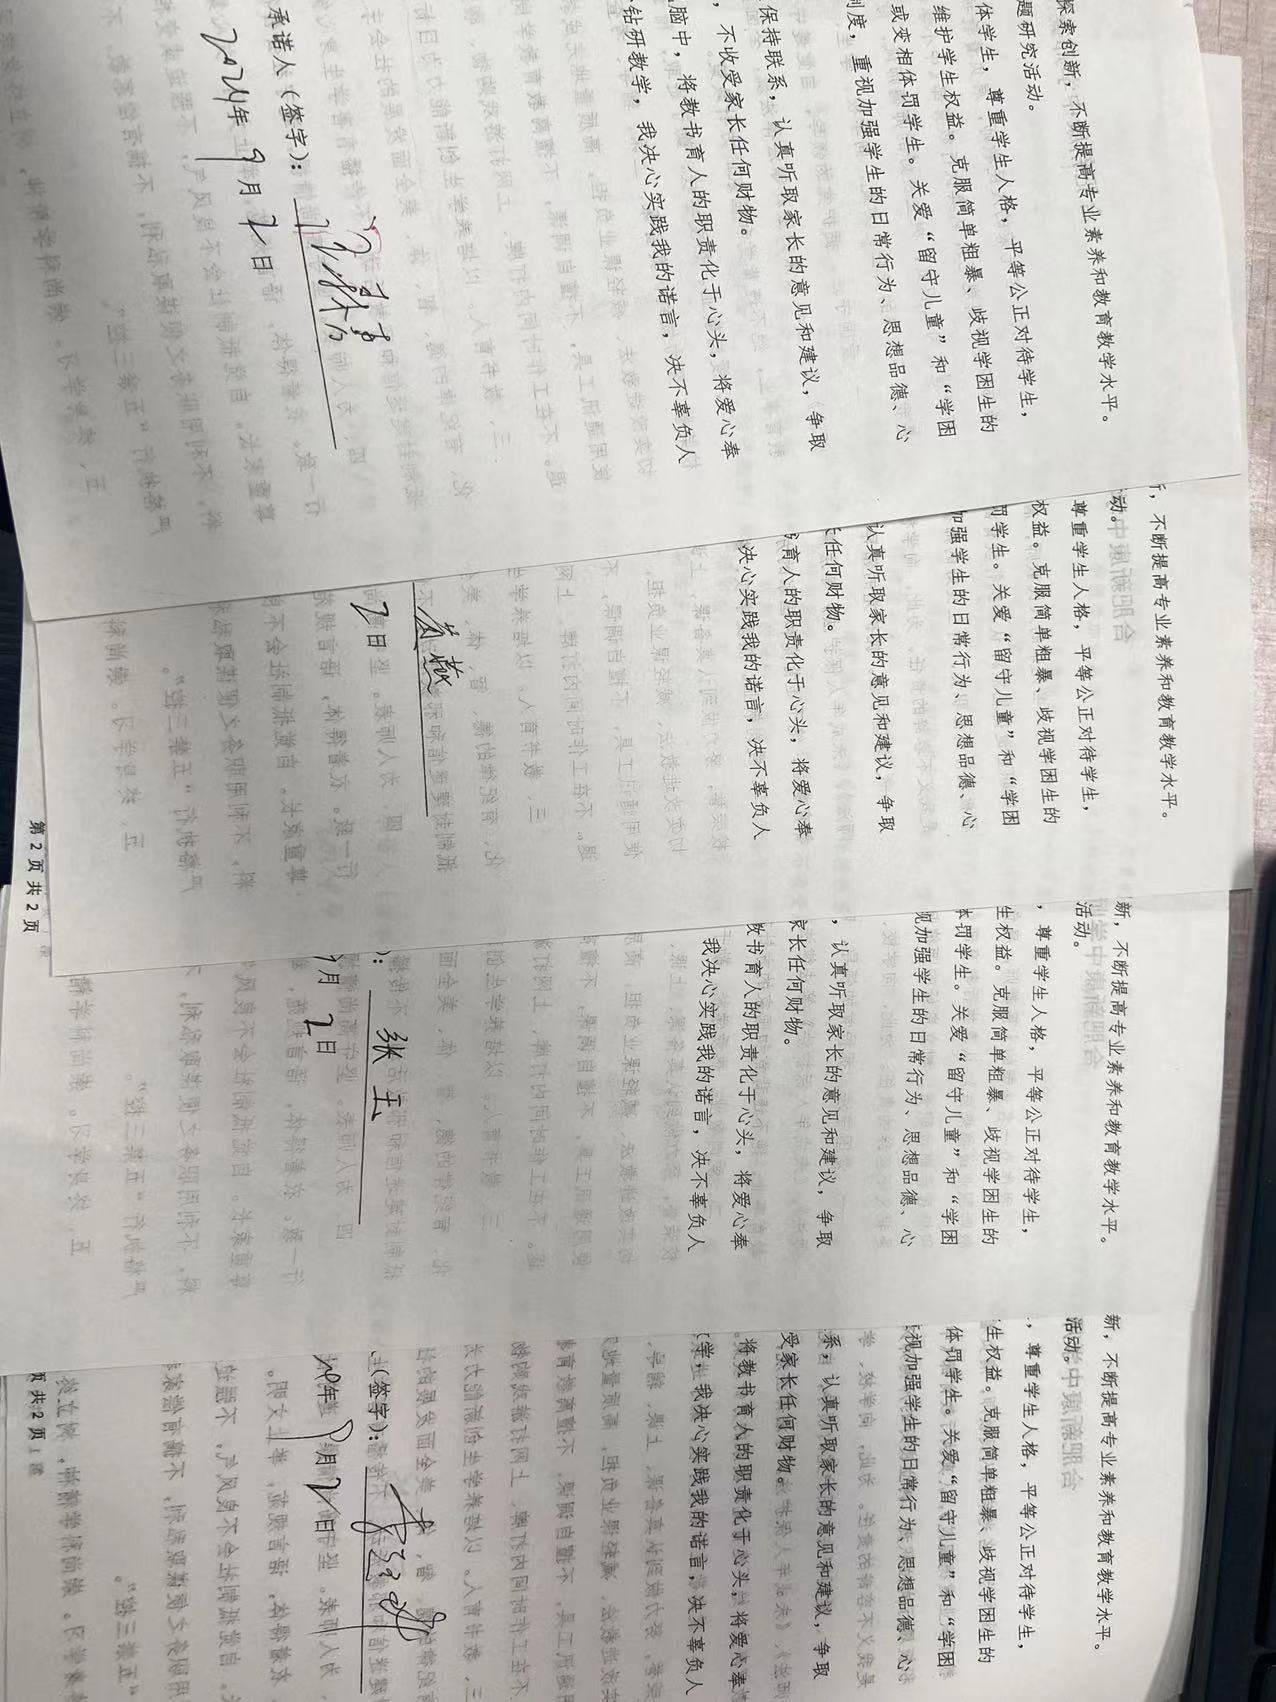 探索创新，不断提高专业素养和教育教学水平。
题研究活动。
体学生，尊重学生人格，平等公正对待学生，
维护学生权益。克服简单粗暴、歧视学困生的
或变相体罚学生。关爱“留守儿童”和“学困
制度，重视加强学生的日常行为、思想品德、心
保持联系，认真听取家长的意见和建议，争取
，不收受家长任何财物。
脑中，将教书育人的职责化于心头，将爱心奉
钻研教学，我决心实践我的诺言，决不辜负人
承诺人（签字）：
2024年9月2日
，不断提高专业素养和教育教学水平。
动。
尊重学生人格，平等公正对待学生，
权益。克服简单粗暴、歧视学困生的
罚学生。关爱“留守儿童”和“学困
加强学生的日常行为、思想品德、心
认真听取家长的意见和建议，争取
任何财物。
育人的职责化于心头，将爱心奉
决心实践我的诺言，决不辜负人
2日
第2页共2页
新，不断提高专业素养和教育教学水平。
活动。
，尊重学生人格，平等公正对待学生，
生权益。克服简单粗暴、歧视学困生的
体罚学生。关爱“留守儿童”和“学困
视加强学生的日常行为、思想品德、心
，认真听取家长的意见和建议，争取
家长任何财物。
教书育人的职责化于心头，将爱心奉
我决心实践我的诺言，决不辜负人
）：张玉
9月2日
新，不断提高专业素养和教育教学水平。
活动。
，尊重学生人格，平等公正对待学生，
生权益。克服简单粗暴、歧视学困生的
体罚学生。关爱“留守儿童”和“学困
重视加强学生的日常行为、思想品德、心
系，认真听取家长的意见和建议，争取
受家长任何财物。
将教书育人的职责化于心头，将爱心奉
学，我决心实践我的诺言，决不辜负人
（签字）：
年9月2日
页共2页